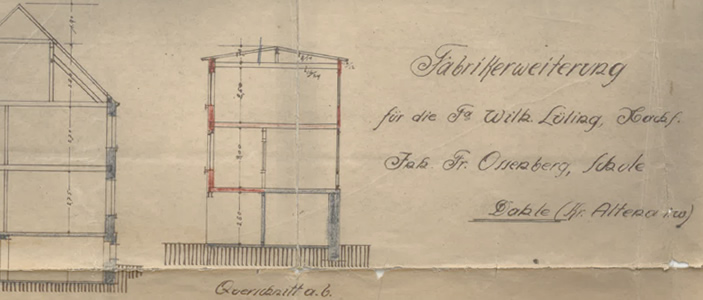 Fabrikerweiterung
für die Fa Wilh. Lüling, Nachf.
Inh. Fr. Ossenberg, Schule
Dahle (Kr. Altena i. W)
Querschnitt a. b.